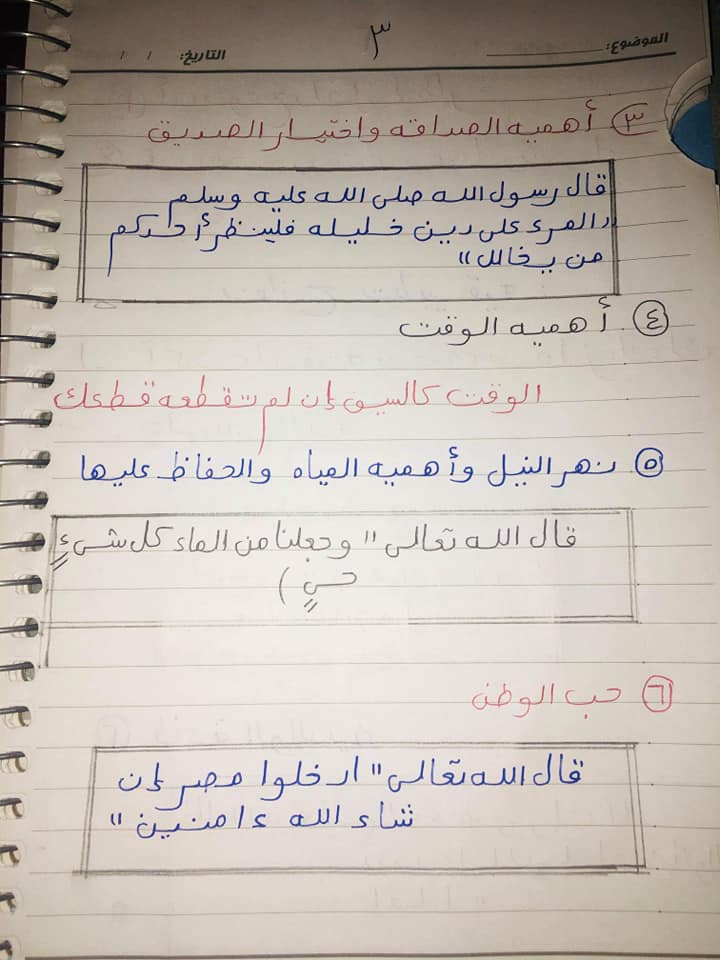 الموضوع:
٣
التاريخ: / /
٣ أهميه الصداقه واختيار الصديق
قال رسول الله صلى الله عليه وسلم
"المرء على دين خليله فلينظر أحدكم
من يخالل"
٤ أهميه الوقت
الوقت كالسيف إن لم تقطعه قطعك
٥ نهر النيل وأهميه المياه والحفاظ عليها
قال الله تعالى " وجعلنا من الماء كل شيءٍ
حيٍ )
٦ حب الوطن
قال الله تعالى " ادخلوا مصر إن
شاء الله ءامنين "